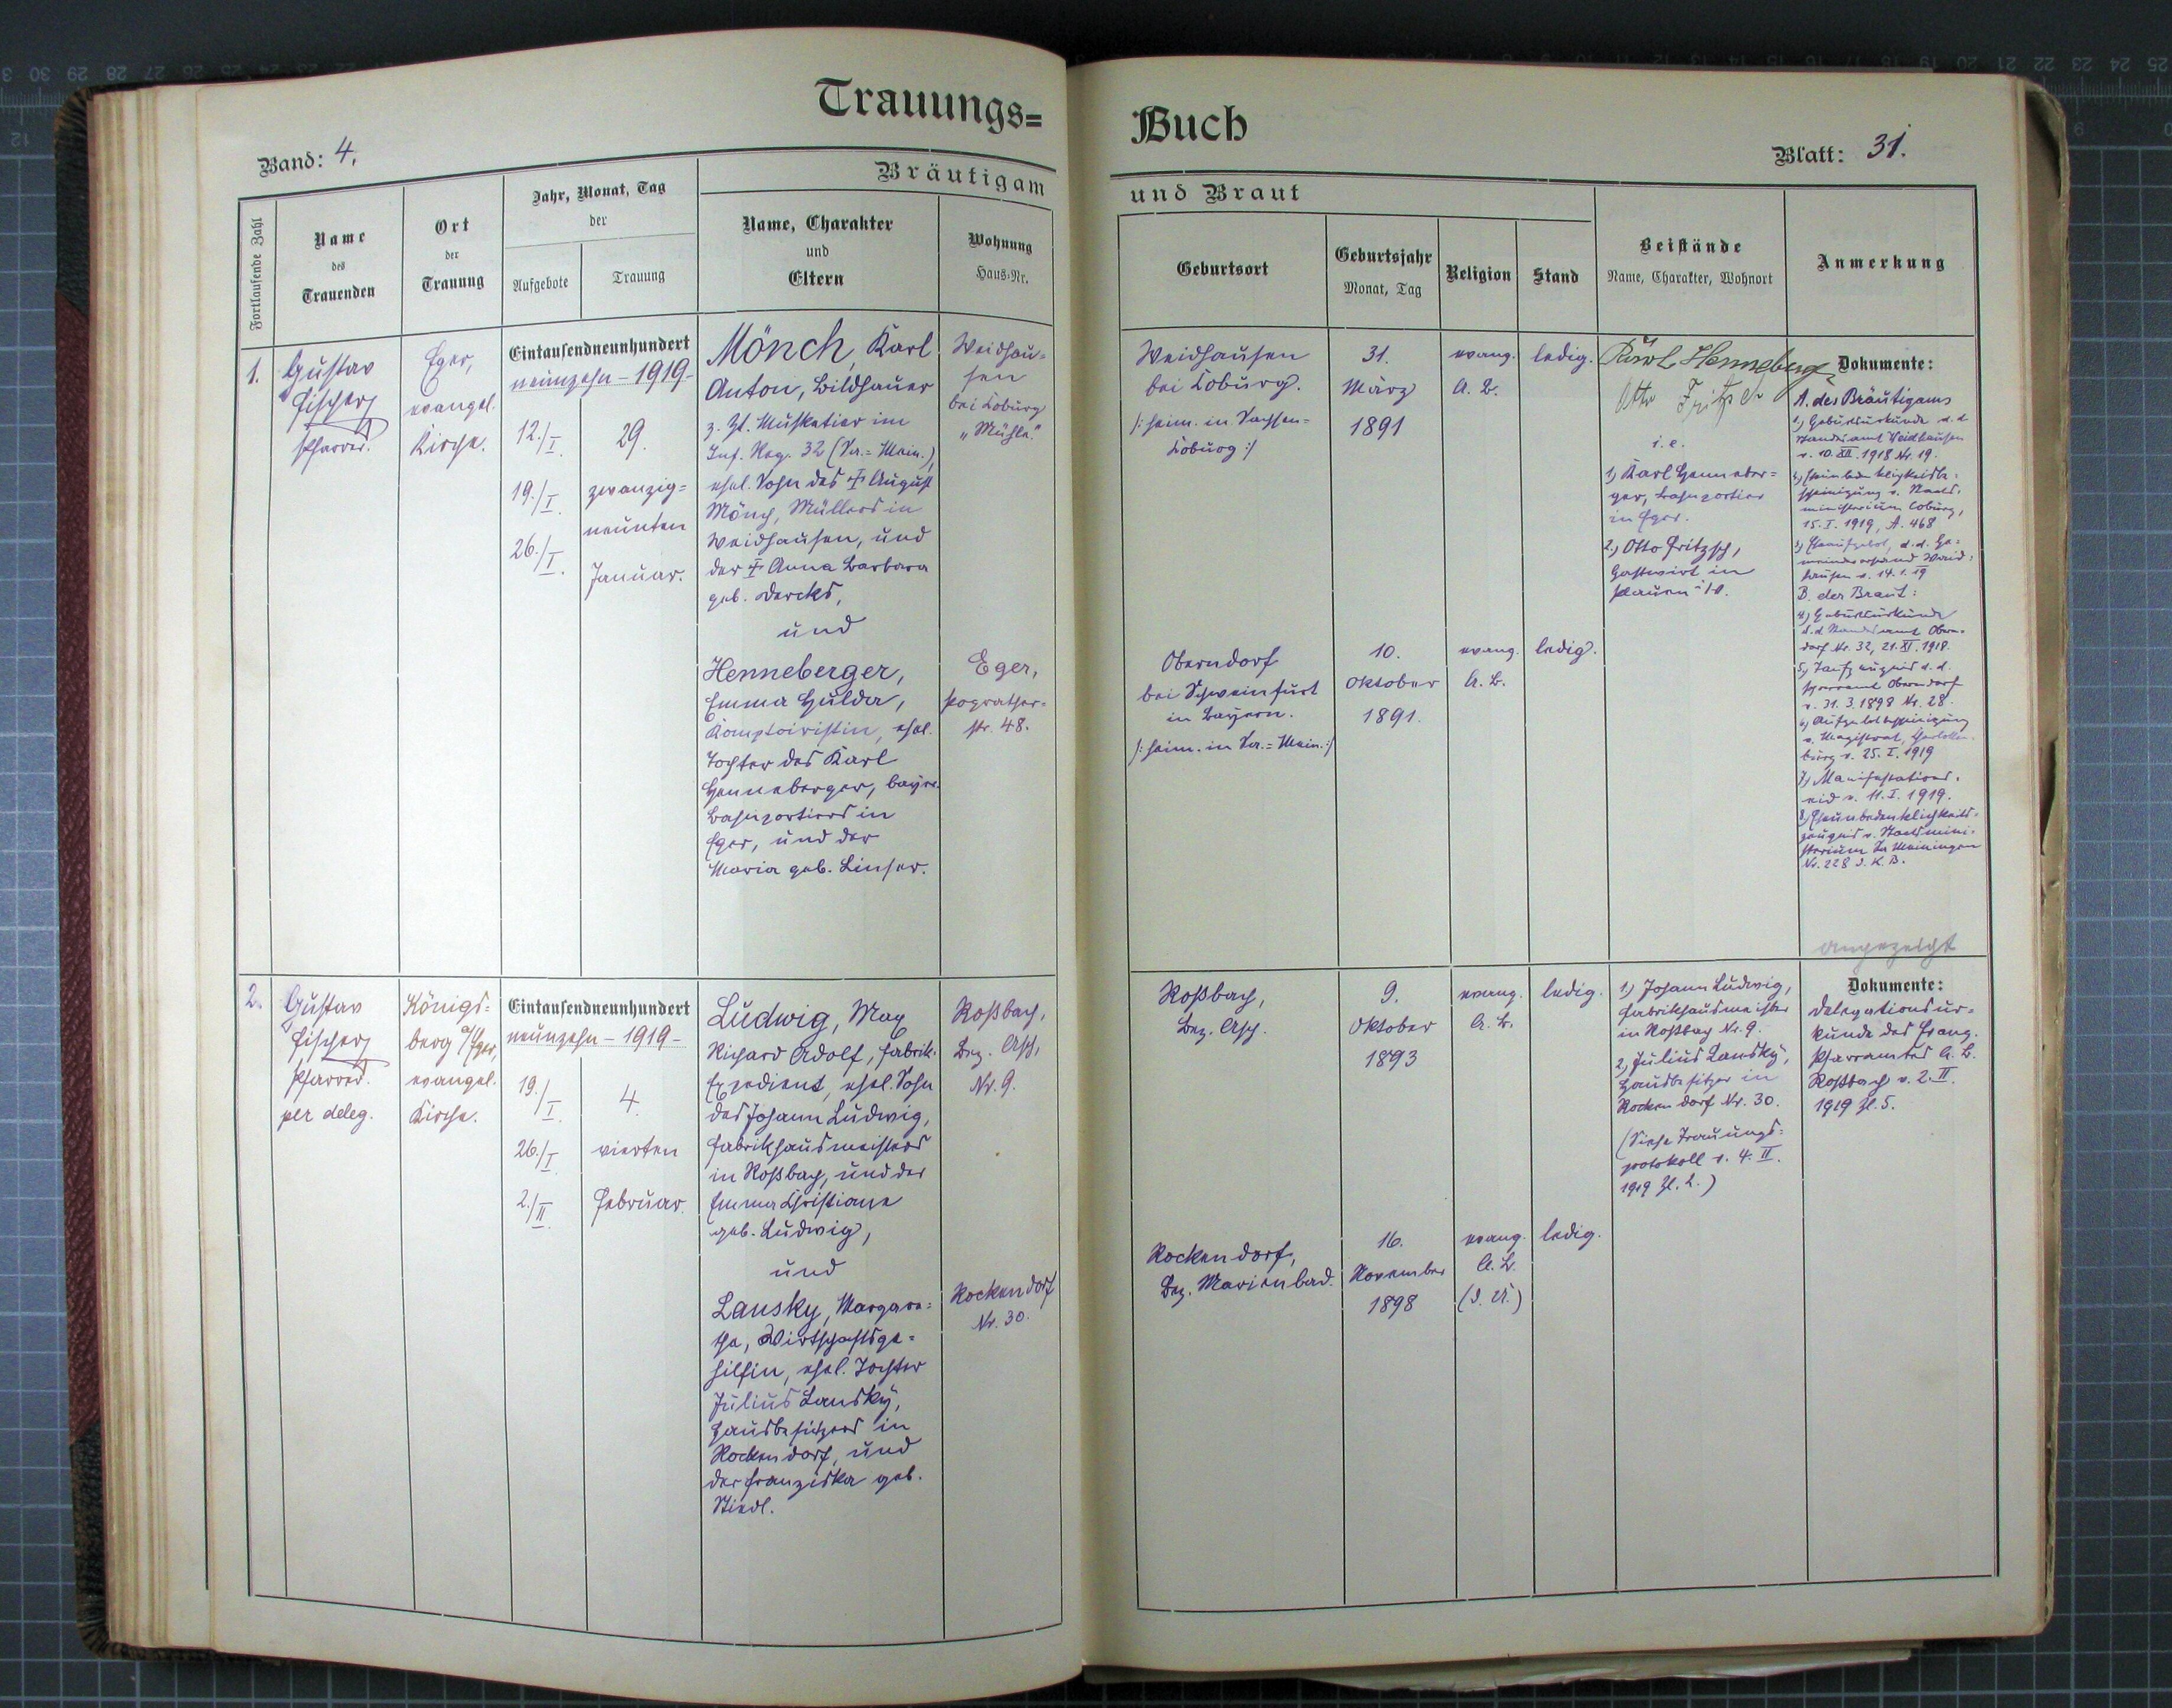 Trauungs=
Buch
Band: 4.
Blatt: 31.
Fortlaufende Zahl
Name
des
Trauenden
Ort
der
Trauung
Jahr, Monat, Tag
der
Aufgebote
Trauung
Bräutigam
und Braut
Name, Charakter
und
Eltern
Wohnung
Haus-Nr.
Geburtsort
Geburtsjahr
Monat, Tag
Religion
Stand
Beistände
Name, Charakter, Wohnort
Anmerkung
1.
Gustav
Fischer
Pfarrer.
Eger,
evangel.
Kirche.
Eintausendneunhundert
neunzehn – 1919 –
12./I.
19./I.
26./I.
29.
zwanzig=
neunten
Januar.
Mönch, Karl
Anton, Bildhauer
z. Zt. Musketier im
Inf. Reg. 32 (Sa.=Mein.),
ehel. Sohn des † August
Mönch, Müllers in
Weidhausen, und
der † Anna Barbara
geb. Dercks,
und
Henneberger,
Emma Hulda,
Komptoiristin, ehel.
Tochter des Karl
Henneberger, bayr.
Bahnportiers in
Eger, und der
Maria geb. Linser.
Weidhau=
sen
bei Koburg
„Mühle."
Eger,
Pograther=
str. 48.
Weidhausen
bei Koburg.
/: heim. in Sachsen=
Koburg :/
31.
März
1891
evang.
A. B.
ledig.
Oberndorf
bei Schweinfurt
in Bayern.
/: heim. in Sa.=Mein. :/
10.
Oktober
1891.
evang.
A. B.
ledig.
Karl Henneberger
Otto Fritzsch
i. e.
1) Karl Henneber=
ger, Bahnportier
in Eger.
2.) Otto Fritzsch,
Gastwirt in
Plauen i. V.
Dokumente:
A. des Bräutigams
1.) Geburtsurkunde d. d.
Standesamt Weidhausen
v. 10. XII. 1918 Nr. 19.
2.) Eheunbedenklichkeitsbe=
scheinigung v. Staats=
ministerium Coburg,
15. I. 1919, A. 468
3) Eheaufgebot, d. d. Ge=
meindevorstand Weid=
hausen v. 14. 1. 19
B. der Braut:
4) Geburtsurkunde
d. d. Standesamt Obern=
dorf Nr. 32, 21. XI. 1918.
5.) Taufzeugnis d. d.
Pfarramt Oberndorf
v. 31. 3. 1898 Nr. 28.
6.) Aufgebotsbescheinigung
v. Magistrat, Charlotten=
burg v. 25. I. 1919
7.) Manifestations=
eid v. 11. I. 1919.
8.) Eheunbedenklichkeits=
zeugnis v. Staatsmini=
sterium Sa Meiningen
Nr. 228 I. K. B.
angezeigt
2.
Gustav
Fischer
Pfarrer.
per deleg.
Königs=
berg a/Eger,
evangel.
Kirche.
Eintausendneunhundert
neunzehn – 1919 –
19./I.
26./I.
2./II.
4.
vierten
Februar.
Ludwig, Max
Richard Adolf, Fabrik=
Expedient, ehel. Sohn
des Johann Ludwig,
Fabrikhausmeisters
in Roßbach, und der
Emma Christiane
geb. Ludwig,
und
Lansky, Margare=
the, Wirtschaftsge=
hilfin, ehel. Tochter
Julius Lansky,
Hausbesitzers in
Rockendorf, und
der Franziska geb.
Stiedl.
Roßbach,
Bez. Asch,
Nr. 9.
Rockendorf
Nr. 30.
Roßbach,
Bez. Asch.
9.
Oktober
1893
evang.
A. B.
ledig.
Rockendorf,
Bez. Marienbad.
16.
November
1898
evang.
A. B.
ledig.
1.) Johann Ludwig,
Fabrikhausmeister
in Roßbach Nr. 9.
2.) Julius Lansky,
Hausbesitzer in
Rockendorf Nr. 30.
(Siehe Trauungs=
protokoll v. 4. II.
1919 Zl. 2.)
Dokumente:
Delegationsur=
kunde des Evang.
Pfarramtes A. B.
Roßbach v. 2. II.
1919 Zl. 5.